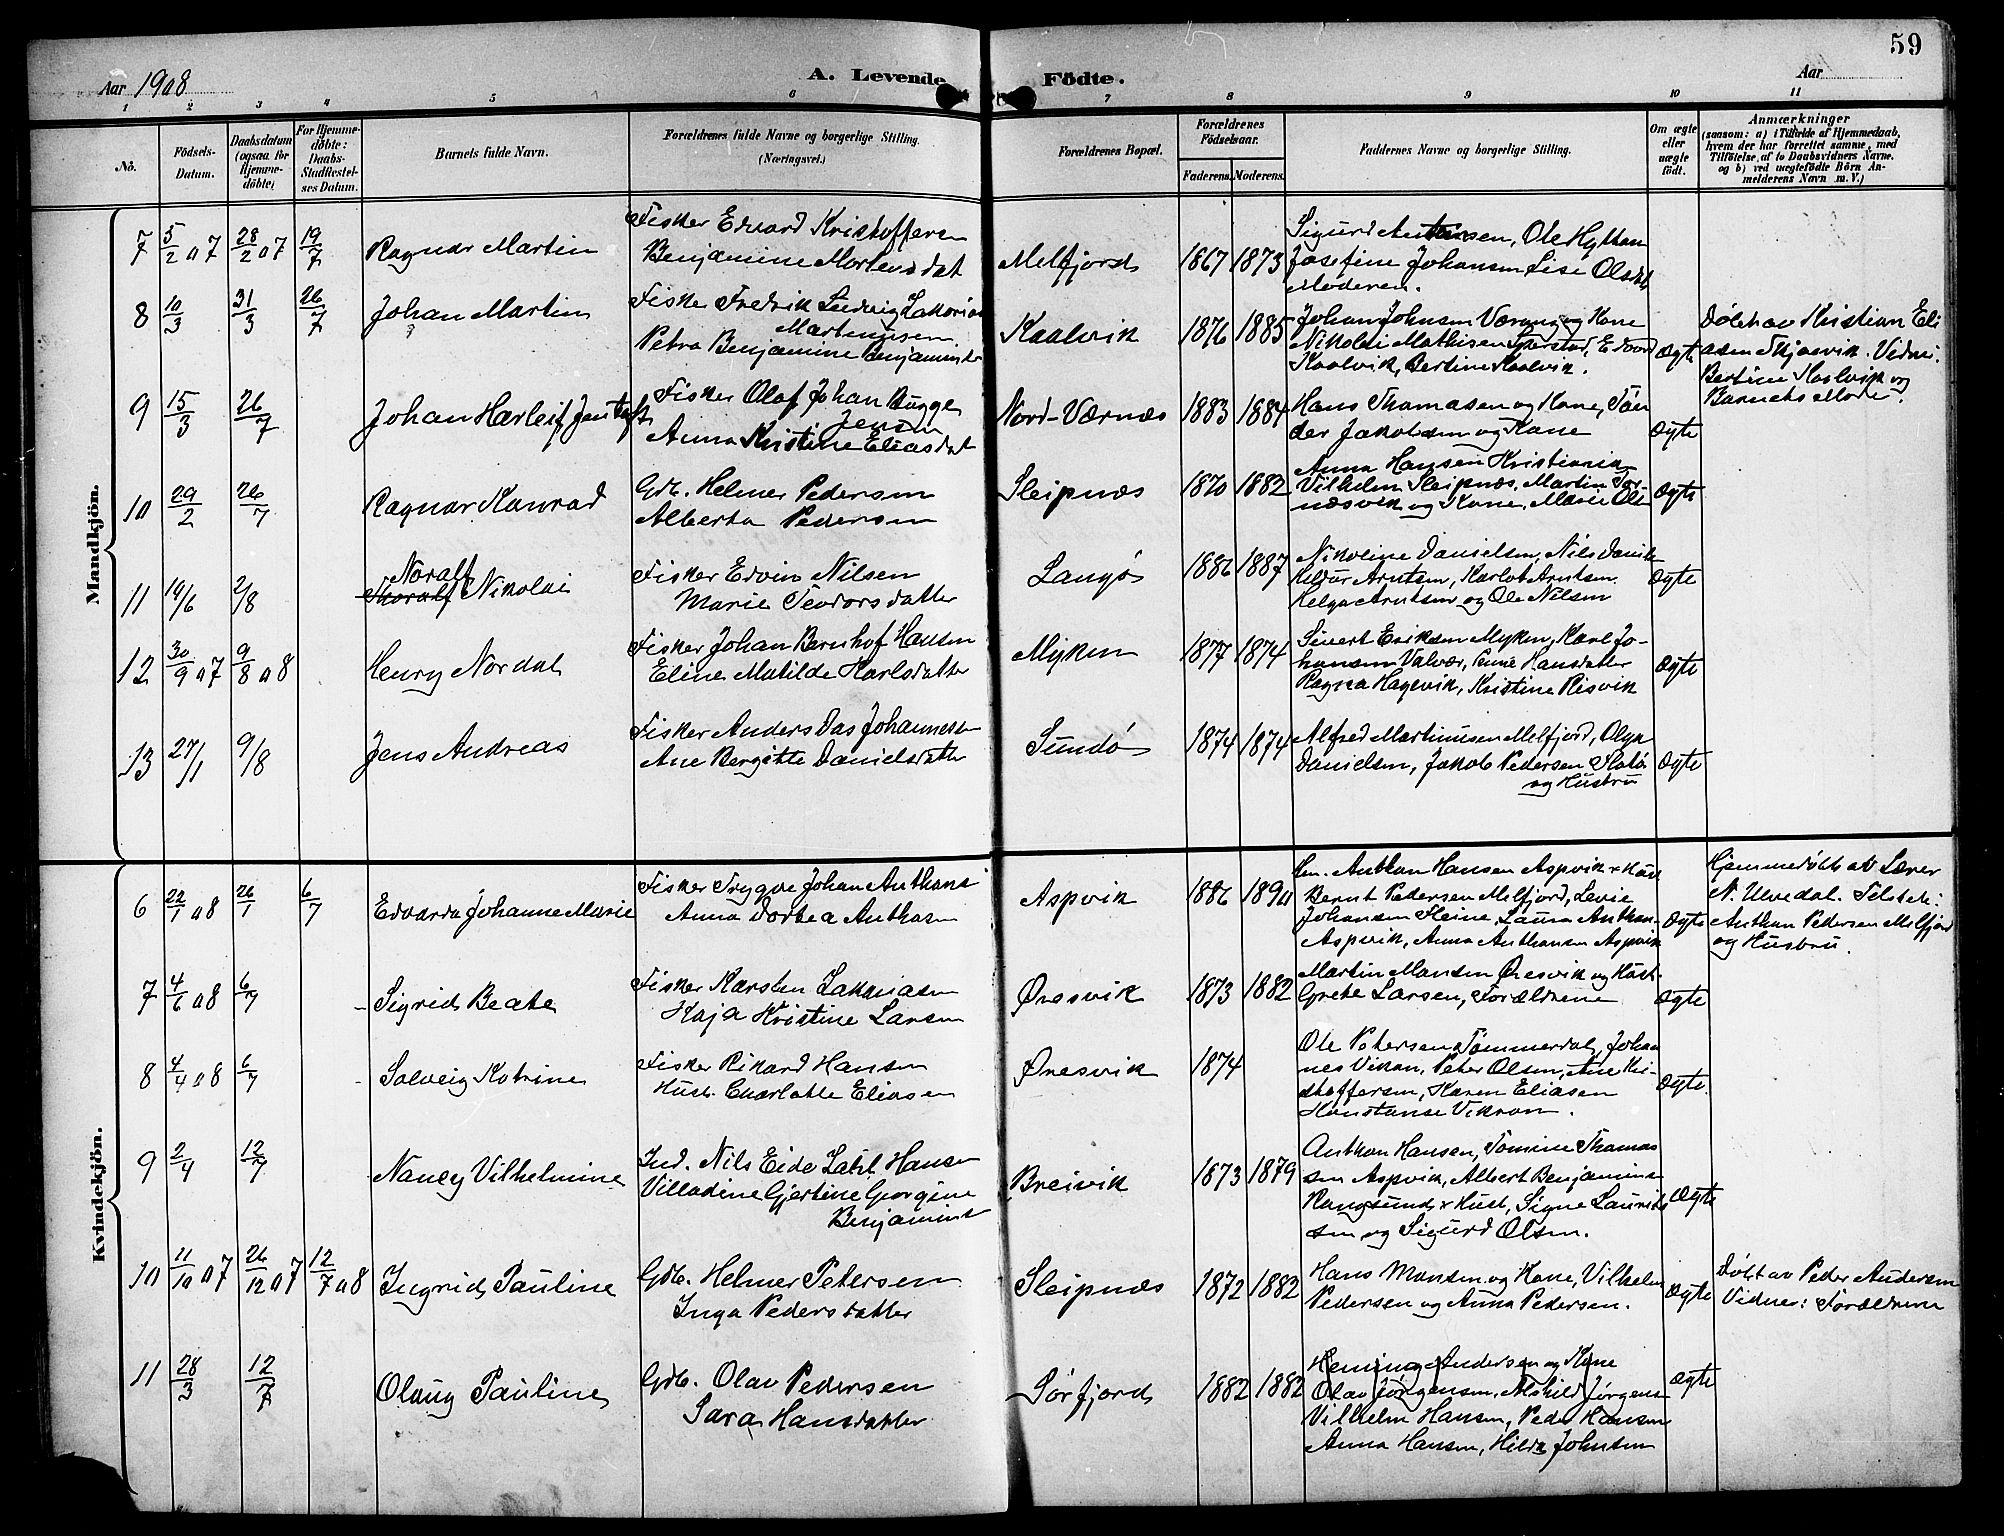 59
Aar 1908
A. Levende Födte.
Aar
1 2 3 4 5 6 7 8 9 10 11
No.
Födsels-Datum.
Daabsdatum (ogsaa for Hjemme-döbte)
For Hjemme-döbte: Daabs-Stadfæstel-ses Datum.
Barnets fulde Navn.
Forældrenes fulde Navne og borgerlige Stilling.
(Næringsvei.)
Forældrenes Bopæl.
Forældrenes Födselsaar.
Faderens. Moderens.
Faddernes Navne og borgerlige Stilling.
Om ægte eller uægte födt.
Anmærkninger
(saasom: a) i Tilfælde af Hjemmedaab,
hvem der har forrettet samme, med
Tilföielse af to Daabsvidners Navne.
og b) ved uægtefödte Börn An-
melderens Navn m. V.)
Mandkjön.
7 5/2 07 28/2 07 19/7 Ragnar Martin
Fisker Edvard Kristoffersen
Benjamine Mortensdat
Melfjord 1867 1873
Sigurd Antonsen, Ole Hyttan
Josefine Johansen Lise Olsdt
Moderen.
8 10/3 31/3 26/7 Johan Martin
Fisker Fredrik Ludvig Zakarias
Martinussen
Petra Benjamine Benjaminsdt
Kaalvik 1876 1885
Johan Johnsen Værang og Kone
Nikolai Mathisen, Edvard
Kaalvik, Bertine Kaalvik.
Ægte
Döbt av Kristian Eli
asen Skjævik. Vidne:
Bertine Kaalvik og
Barnets Moder.
9 15/3 26/7 Johan Harleif Jentoft
Fisker Olaf Johan Bugge
Jensen
Anna Kristine Eliasdat
Nord-Værnæs 1883 1884
Hans Thomasen og Kone, Tön
der Jakobsen og Kone
Ægte
10 29/2 26/7 Ragnar Konrad
Gdb. Helmer Pedersen
Alberta Pedersen
Sleipnæs 1870 1882
Anna Hansen Kristiania
Vilhelm Sleipnæs, Martin Tor-
næsvik og Kone, Marie Ols
Ægte
11 14/6 2/8 Thoralf Noralf Nikolai
Fisker Edvin Nilsen
Marie Teodorsdatter
Langö 1886 1887
Nikoline Danielsen, Nils Daniels
Hildur Arntsen, Karlot Arntsen
Helga Arntsen og Ole Nilsen
Ægte
12 30/9 07 9/8 08 Henry Nordal
Fisker Johan Bernhof Hansen
Eline Matilde Karlsdatter
Myken 1877 1874
Sivert Eriksen Myken, Karl Jo-
hansen Valvær, Pernie Hansdatter
Ragna Hagevik, Kristine Risvik
Ægte
13 27/1 9/8 Jens Andreas
Fisker Anders Das Johannesen
Ane Bergitte Danielsdatter
Sundö 1874 1874
Alfred Martinusen Melfjord, Olga
Danielsen, Jakob Pedersen Flatö
og Hustru
Ægte
Kvindekjön.
6 22/1 08 26/1 6/7 Edvarda Johanne Marie
Fisker Trygve Johan Anthons
Anna Dortea Anthonsen
Aspvik 1886 1890
Anthon Hansen Aspvik + Hust
Bernt Pedersen Melfjord, Levie
Johansen Steine, Laura Anthon-
Aspvik, Anna Anthonsen Aspvik
Ægte
Hjemmedöbt af Lærer
N. Ulvedal. Tilstede:
Anthon Pedersen Melfjord
og Hustru.
7 4/6 08 6/7 Sigrid Beate
Fisker Karsten Zakariasen
Kaja Kristine Larsen
Öresvik 1873 1882
Martin Monsen Öresvik og Hust
Grete Larsen, Forældrene
Ægte
8 4/4 08 6/7 Solveig Katrine
Fisker Rikard Hansen
Hust. Charlotte Eliasen
Öresvik 1874
Ole Petersen Tömmerdal, Johan
nes Vikran, Peter Olsen, Ane Kri-
stoffersen, Karen Eliasen
Konstanse Vikran.
Ægte
9 2/4 12/7 Nancy Vilhelmine
Ind. Nils Eide Hansen
Villadine Gjertine Georgine
Benjaminsd
Breivik 1873 1879
Anthon Hansen, Tomine Thomas
sen Aspvik, Albert Benjamins
Rangsund + Hust, Signe Laurits
sen og Sigurd Olsen.
Ægte
10 11/10 07 26/12 07 12/7 08 Ingrid Pauline
Gdb. Helmer Petersen
Inga Pedersdatter
Sleipnæs 1872 1882
Hans Monsen og Kone, Vilhelm
Pedersen og Anna Pedersen.
Ægte
Döbt av Peder Andersen
Vidner: Forældrene
11 28/3 12/7 Olaug Pauline
Gdb. Olav Pedersen
Sara Hansdatter
Sörfjord 1882 1882
Heming Andersen og Kone
Olav Jörgensen, Alshild Jörgens
Vilhelm Hansen, Peder Hansen
Anna Hansen, Hilda Johnsen
Ægte